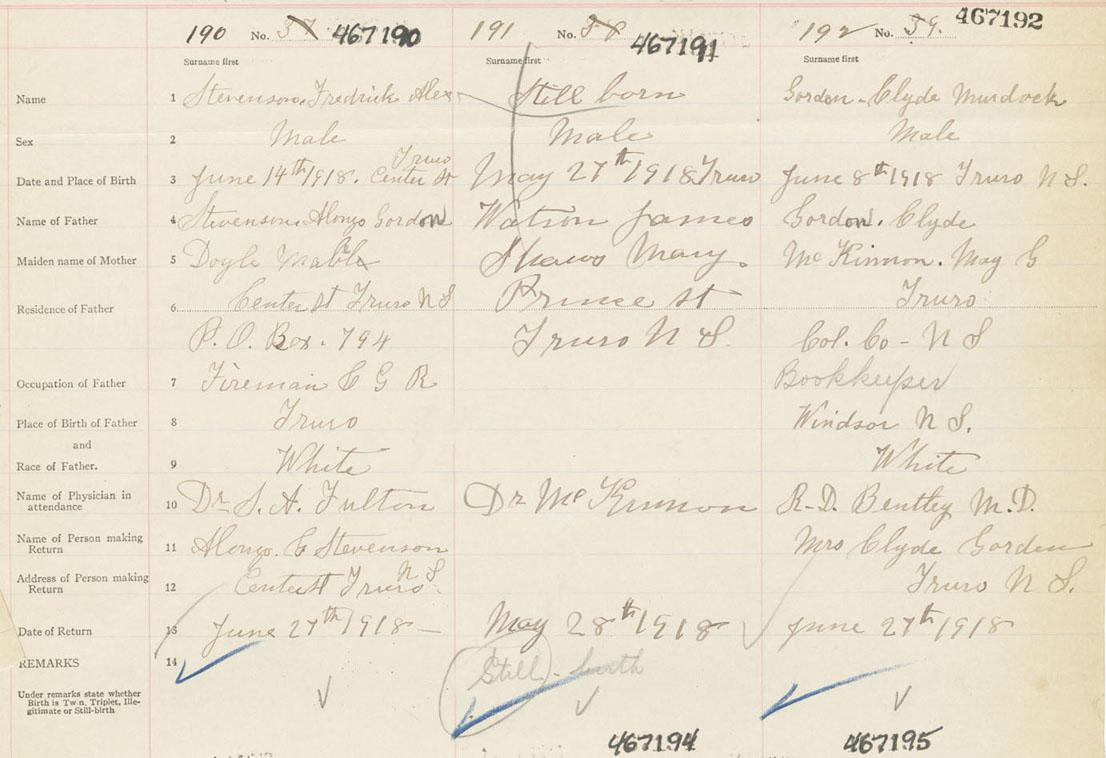 190 No. 37 467190 191 No. 38 467191 192 No. 39. 467192
Surname first Surname first Surname first
Name 1 Stevenson, Fredrick Alex Still born Gordon - Clyde Murdock
Sex 2 Male Male Male
Truro
Date and Place of Birth 3 June 14th 1918. Center St May 27th 1918 Truro June 8th 1918 Truro N S.
Name of Father 4 Stevenson, Alonzo Gordon Watson James Gordon. Clyde
Maiden name of Mother 5 Doyle Mable Shaws Mary. Mc Kinnon. May G
Residence of Father 6 Center St Truro N S Prince St Truro
P. O. Box. 794 Truro N S. Col. Co - N S
Occupation of Father 7 Fireman C G R Bookkeeper
Place of Birth of Father 8 Truro Windsor N S.
and
Race of Father. 9 White White
Name of Physician in
attendance 10 Dr S. A. Fulton Dr Mc Kinnon R. D. Bentley M. D.
Name of Person making
Return 11 Alonzo. G Stevenson Mrs Clyde Gorden
Address of Person making
Return 12 Center St Truro N S. Truro N S.
Date of Return 13 June 27th 1918 — May 28th 1918 June 27th 1918
REMARKS 14 Still - birth
Under remarks state whether
Birth is Twin, Triplet, Ille-
gitimate or Still-birth
467194 467195